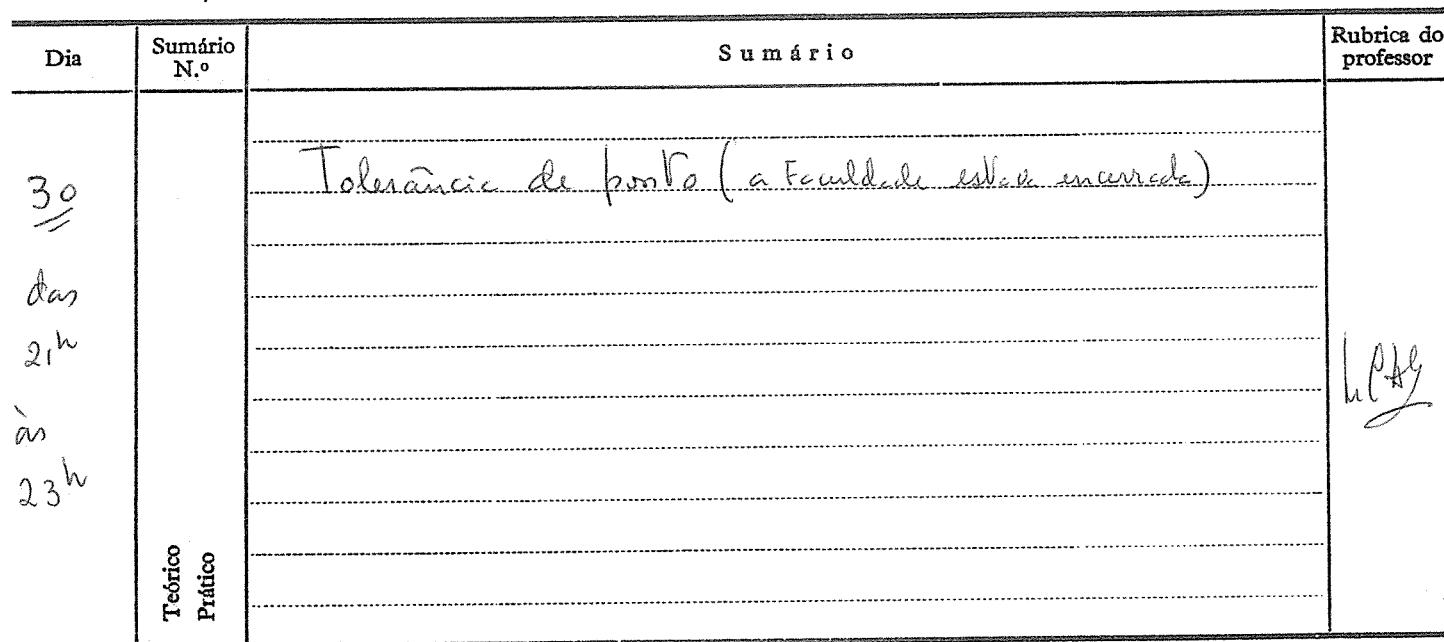 Dia
Sumário N.º
Sumário
Rubrica do professor
30
das
21h
às
23h
Teórico
Prático
Tolerância de ponto (a Faculdade estava encerrada)